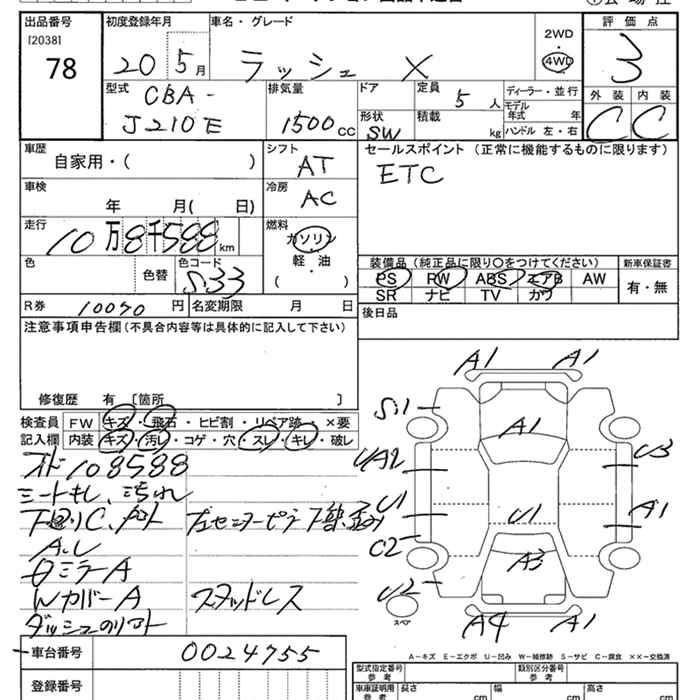 出品番号 初度登録年月 車名・グレード 評価点
[2038] 78 20 5月 ラッシュ X 2WD ・ 4WD 3
型式 CBA- J210E 排気量 1500cc ドア 形状 SW 定員 5人 積載 kg ディーラー・並行 モデル年式 年 ハンドル 左・右
外装 C 内装 C
車歴 自家用・( ) シフト AT セールスポイント (正常に機能するものに限ります)
車検 年 月( 日) 冷房 AC ETC
走行 10万8千588km 燃料 ガソリン 軽・油 ( )
色 色替 色コード S33
装備品 (純正品に限り○をつけてください) 新車保証書
PS RW ABS エアB AW 有・無
SR ナビ TV カワ
R券 10070円 名変期限 月 日 後日品
注意事項申告欄 (不具合内容等は具体的に記入して下さい)
修復歴 有 [箇所 ]
検査員 FW キズ・飛石・ヒビ割・リペア跡・×要
記入欄 内装 キズ・汚レ・コゲ・穴・スレ・キレ・破レ
108588
A1 A1
S1 A1
UA2 U3
U1 U1 A1
C2 A3
U2 A4 A1
スペア
WカバーA スタッドレス
A-キズ E-エクボ U-凹み W-補修跡 S-サビ C-腐食 ××-交換済
車台番号 0024755
型式指定番号 参考 類別区分番号 参考
登録番号
車車証明用 参考 長さ cm 幅 cm 高さ cm